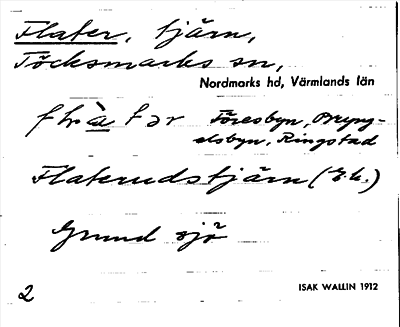 Flater, tjärn,
Töcksmarks sn,
Nordmarks hd, Värmlands län
Föresbyn, Bryng-
elsbyn, Ringstad
Flaterudstjärn (E.k.)
Grund sjö
2
ISAK WALLIN 1912